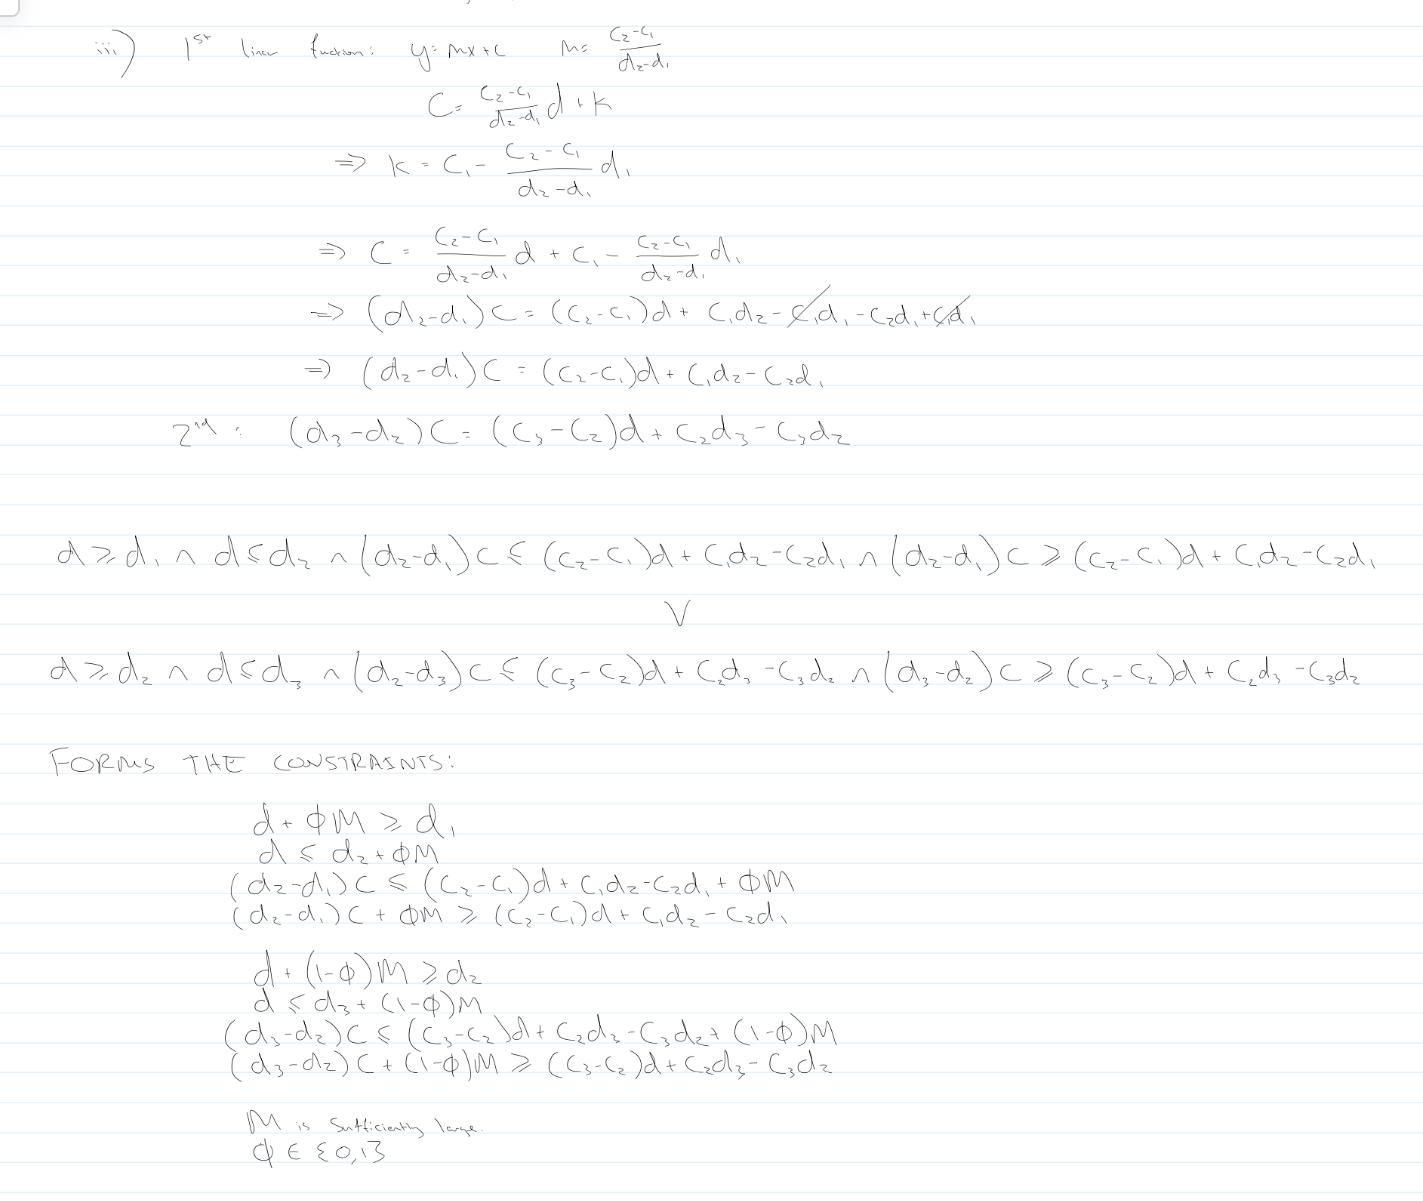 iii) 1st linear function: y = mx + c m = (c₂-c₁)/(d₂-d₁)
C = (c₂-c₁)/(d₂-d₁) d + k
⇒ k = c₁ - (c₂-c₁)/(d₂-d₁) d₁
⇒ C = (c₂-c₁)/(d₂-d₁) d + c₁ - (c₂-c₁)/(d₂-d₁) d₁
⇒ (d₂-d₁)C = (c₂-c₁)d + c₁d₂ - c₁d₁ - c₂d₁ + c₁d₁
⇒ (d₂-d₁)C = (c₂-c₁)d + c₁d₂ - c₂d₁
2nd : (d₃-d₂)C = (c₃-c₂)d + c₂d₃ - c₃d₂
d ≥ d₁ ∧ d ≤ d₂ ∧ (d₂-d₁)C ≤ (c₂-c₁)d + c₁d₂ - c₂d₁ ∧ (d₂-d₁)C ≥ (c₂-c₁)d + c₁d₂ - c₂d₁
∨
d ≥ d₂ ∧ d ≤ d₃ ∧ (d₂-d₃)C ≤ (c₃-c₂)d + c₂d₃ - c₃d₂ ∧ (d₃-d₂)C ≥ (c₃-c₂)d + c₂d₃ - c₃d₂
FORMS THE CONSTRAINTS:
d + ϕM ≥ d₁
d ≤ d₂ + ϕM
(d₂-d₁)C ≤ (c₂-c₁)d + c₁d₂ - c₂d₁ + ϕM
(d₂-d₁)C + ϕM ≥ (c₂-c₁)d + c₁d₂ - c₂d₁
d + (1-ϕ)M ≥ d₂
d ≤ d₃ + (1-ϕ)M
(d₃-d₂)C ≤ (c₃-c₂)d + c₂d₃ - c₃d₂ + (1-ϕ)M
(d₃-d₂)C + (1-ϕ)M ≥ (c₃-c₂)d + c₂d₃ - c₃d₂
M is sufficiently large.
ϕ ∈ {0,1}